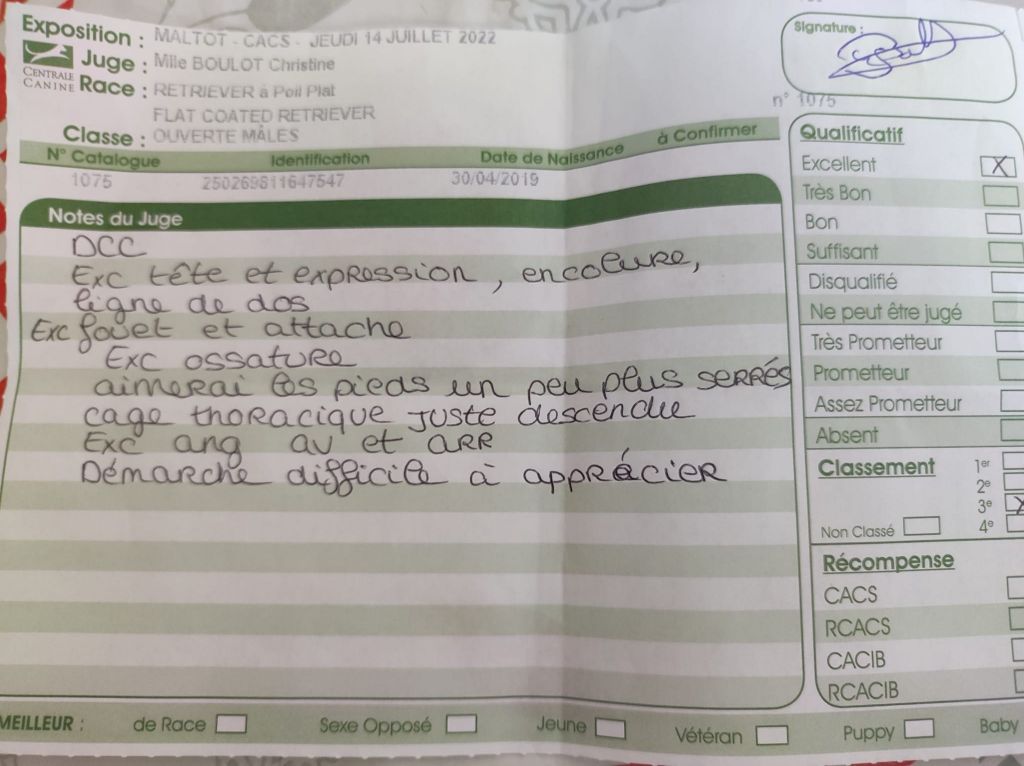 Exposition : MALTOT - CACS - JEUDI 14 JUILLET 2022
Juge : Mlle BOULOT Christine
CENTRALE
CANINE
Race : RETRIEVER à Poil Plat
FLAT COATED RETRIEVER
Classe : OUVERTE MÂLES
Signature :
n° 1075
N° Catalogue Identification Date de Naissance à Confirmer
1075 250269811647547 30/04/2019
Notes du Juge
DCC
Exc tête et expression, encolure,
ligne de dos
Exc fouet et attache
Exc ossature
aimerai les pieds un peu plus serrés
cage thoracique juste descendue
Exc ang av et arr
Démarche difficile à apprécier
Qualificatif
Excellent X
Très Bon
Bon
Suffisant
Disqualifié
Ne peut être jugé
Très Prometteur
Prometteur
Assez Prometteur
Absent
Classement 1er
2e
3e X
Non Classé 4e
Récompense
CACS
RCACS
CACIB
RCACIB
MEILLEUR : de Race Sexe Opposé Jeune Vétéran Puppy Baby